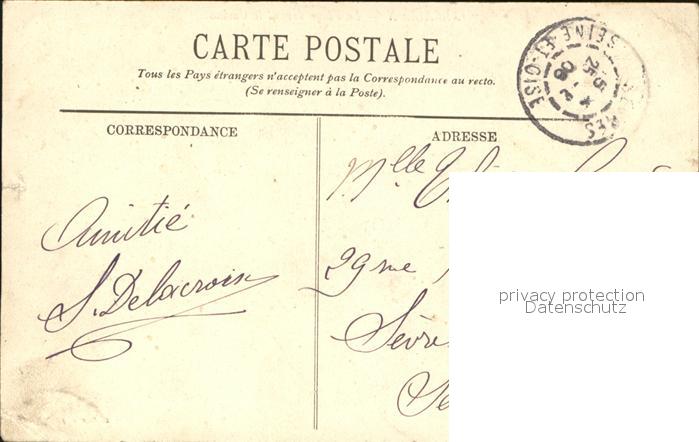 CARTE POSTALE
Tous les Pays étrangers n'acceptent pas la Correspondance au recto.
(Se renseigner à la Poste).
SEINE-ET-OISE
CORRESPONDANCE
ADRESSE
Amitié
S. Delacroix
Mlle
29 rue
privacy protection
Datenschutz